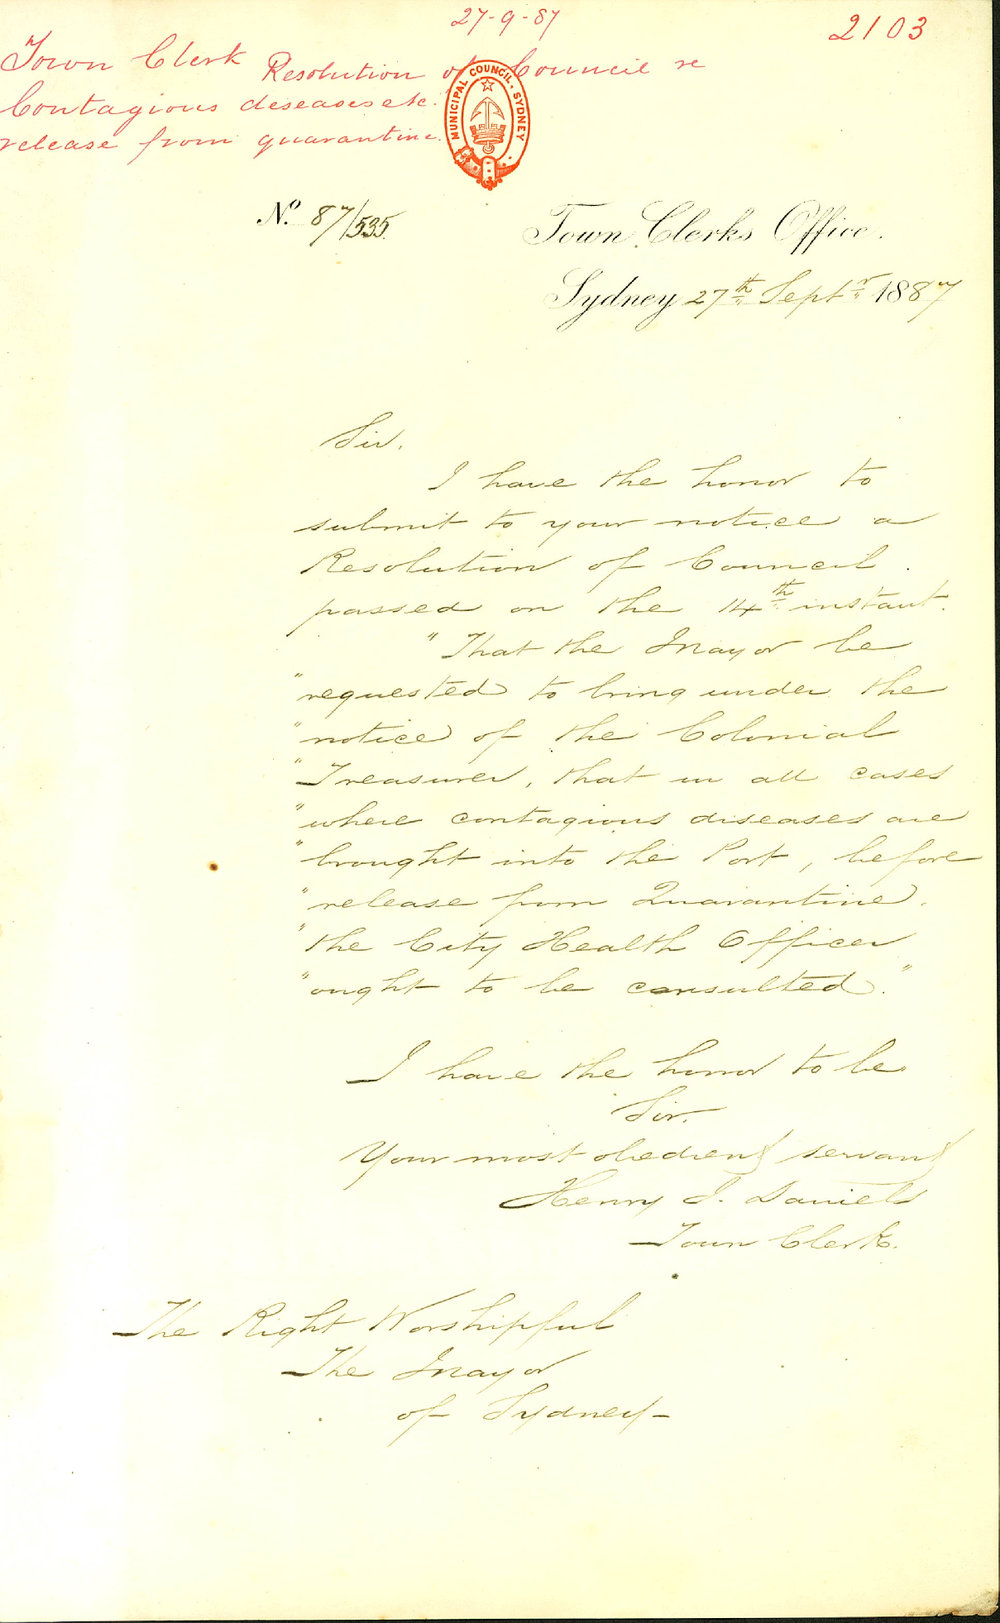 27-9-87
2103
Town Clerk Resolution of Council re
Contagious deseases etc.
release from quarantine.
MUNICIPAL COUNCIL. SYDNEY
No. 87/535.
Town Clerks Office.
Sydney 27th Septr 1887
Sir.
I have the honor to
submit to your notice a
Resolution of Council.
passed on the 14th instant.
"That the Mayor be
"requested to bring under the
"notice of the Colonial
"Treasurer, that in all cases
"where contagious diseases are
"brought into the Port, before
"release from Quarantine.
"the City Health Officer
"ought to be consulted."
I have the honor to be
Sir.
Your most obedient servant
Henry J. Daniels
Town Clerk.
The Right Worshipful
The Mayor
of Sydney-